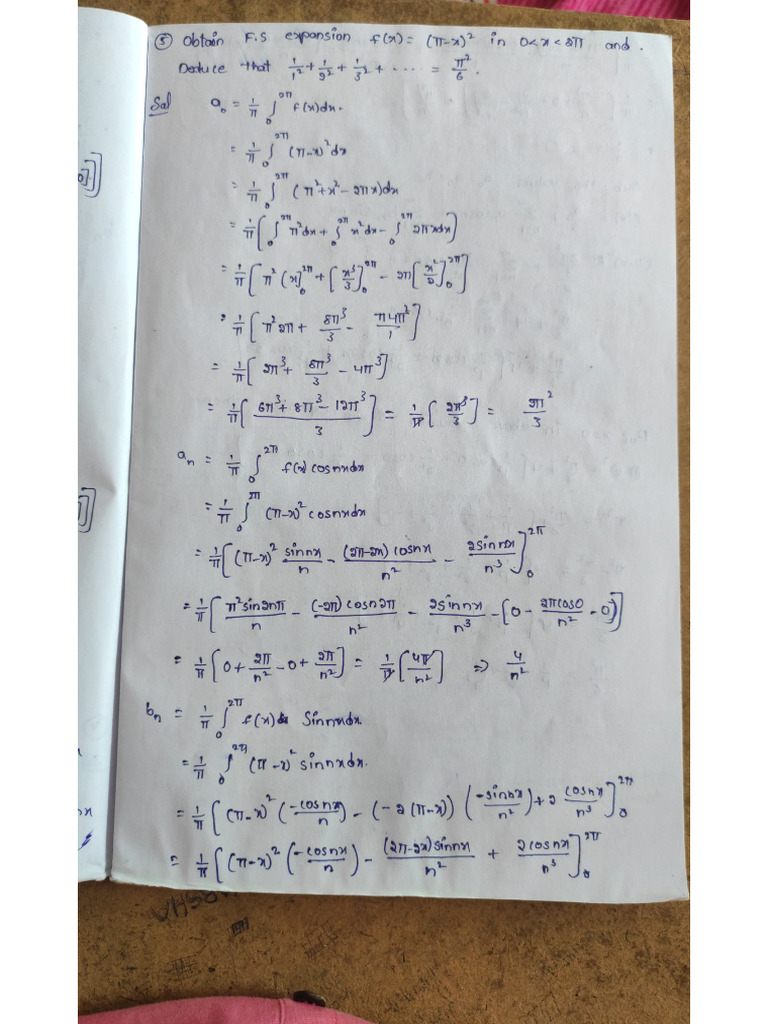 ⑤ Obtain F.S expansion f(x) = (π-x)² in 0<x<2π and.
Deduce that 1/1² + 1/2² + 1/3² + .... = π²/6.
Sol a₀ = 1/π ∫₀^2π f(x)dx.
= 1/π ∫₀^2π (π-x)² dx
= 1/π ∫₀^2π (π²+x²-2πx)dx
= 1/π [∫₀^2π π²dx + ∫₀^2π x²dx - ∫₀^2π 2πxdx]
= 1/π [π²(x]₀^2π + [x³/3]₀^2π - 2π[x²/2]₀^2π]
= 1/π [π²2π + 8π³/3 - π4π²/1]
= 1/π [2π³ + 8π³/3 - 4π³]
= 1/π [(6π³+8π³-12π³)/3] = 1/π [2π³/3] = 2π²/3
aₙ = 1/π ∫₀^2π f(x) cosnxdx
= 1/π ∫₀^2π (π-x)² cosnxdx
= 1/π [(π-x)² sinnx/n - (2π-2x) cosnx/n² - 2sinnx/n³]₀^2π
= 1/π [π²sin2nπ/n - (-2π)cosn2π/n² - 2sinnx/n³ - [0 - 2πcos0/n² - 0)]
= 1/π [0 + 2π/n² - 0 + 2π/n²] = 1/π [4π/n²] ⇒ 4/n²
bₙ = 1/π ∫₀^2π f(x) Sinnxdx.
= 1/π ∫₀^2π (π-x)² sinnxdx.
= 1/π [(π-x)² (-cosnx/n) - (-2(π-x)) (-sinnx/n²) + 2 cosnx/n³]₀^2π
= 1/π [(π-x)² (-cosnx/n) - (2π-2x)sinnx/n² + 2cosnx/n³]₀^2π